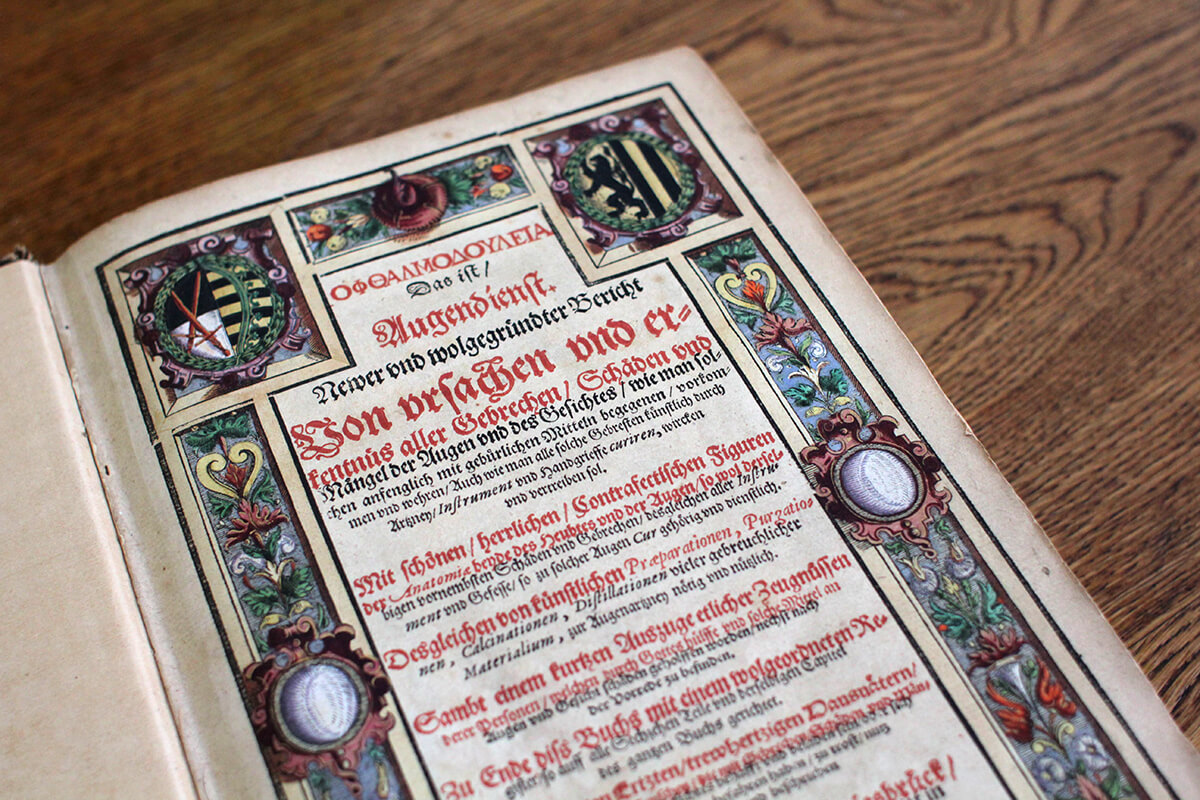 ΟΦΘΑΛΜΟΔΟΥΛΕΙΑ
Das ist/
Augendienst.
Newer vnd wolgegründter Bericht
Von vrsachen vnd er-
kentnüs aller Gebrechen/ Schäden vnd
Mängel der Augen vnd des Gesichtes/ wie man sol-
chen anfenglich mit gebürlichen Mitteln begegenen/ vorkom-
men vnd wehren/ Auch wie man alle solche Gebresten künstlich durch
Artzney/ Instrument vnd Handgrieffe curiren, wircken
vnd vertreiben sol.
Mit schönen/ herrlichen/ Contrafectischen Figuren
der Anatomiæ beyde des Heubtes vnd der Augen/ so wol dersel-
bigen vornembsten Schäden vnd Gebrechen/ desgleichen aller Instru-
ment vnd Gefesse/ so zu solcher Augen Cur gehörig vnd dienstlich.
Desgleichen von künstlichen Præparationen, Purgatio-
nen, Calcinationen, Distillationen vieler gebreuchlicher
Materialium, zur Augenartzney nötig vnd nützlich.
Sambt einem kurtzen Auszuge etlicher Zeugnüssen
derer Personen/ welchen durch Gottes hülffe vnd solche Mittel an
Augen vnd Gesicht schäden geholffen worden/ nechst nach
der Vorrede zu befinden.
Zu Ende diss Buchs mit einem wolgeordneten Re-
gister/ so auff alle Schichten Zeile vnd derselbigen Capitel
des gantzen Buchs gerichtet.
Ertzten/ trewhertzigen Hausvätern/